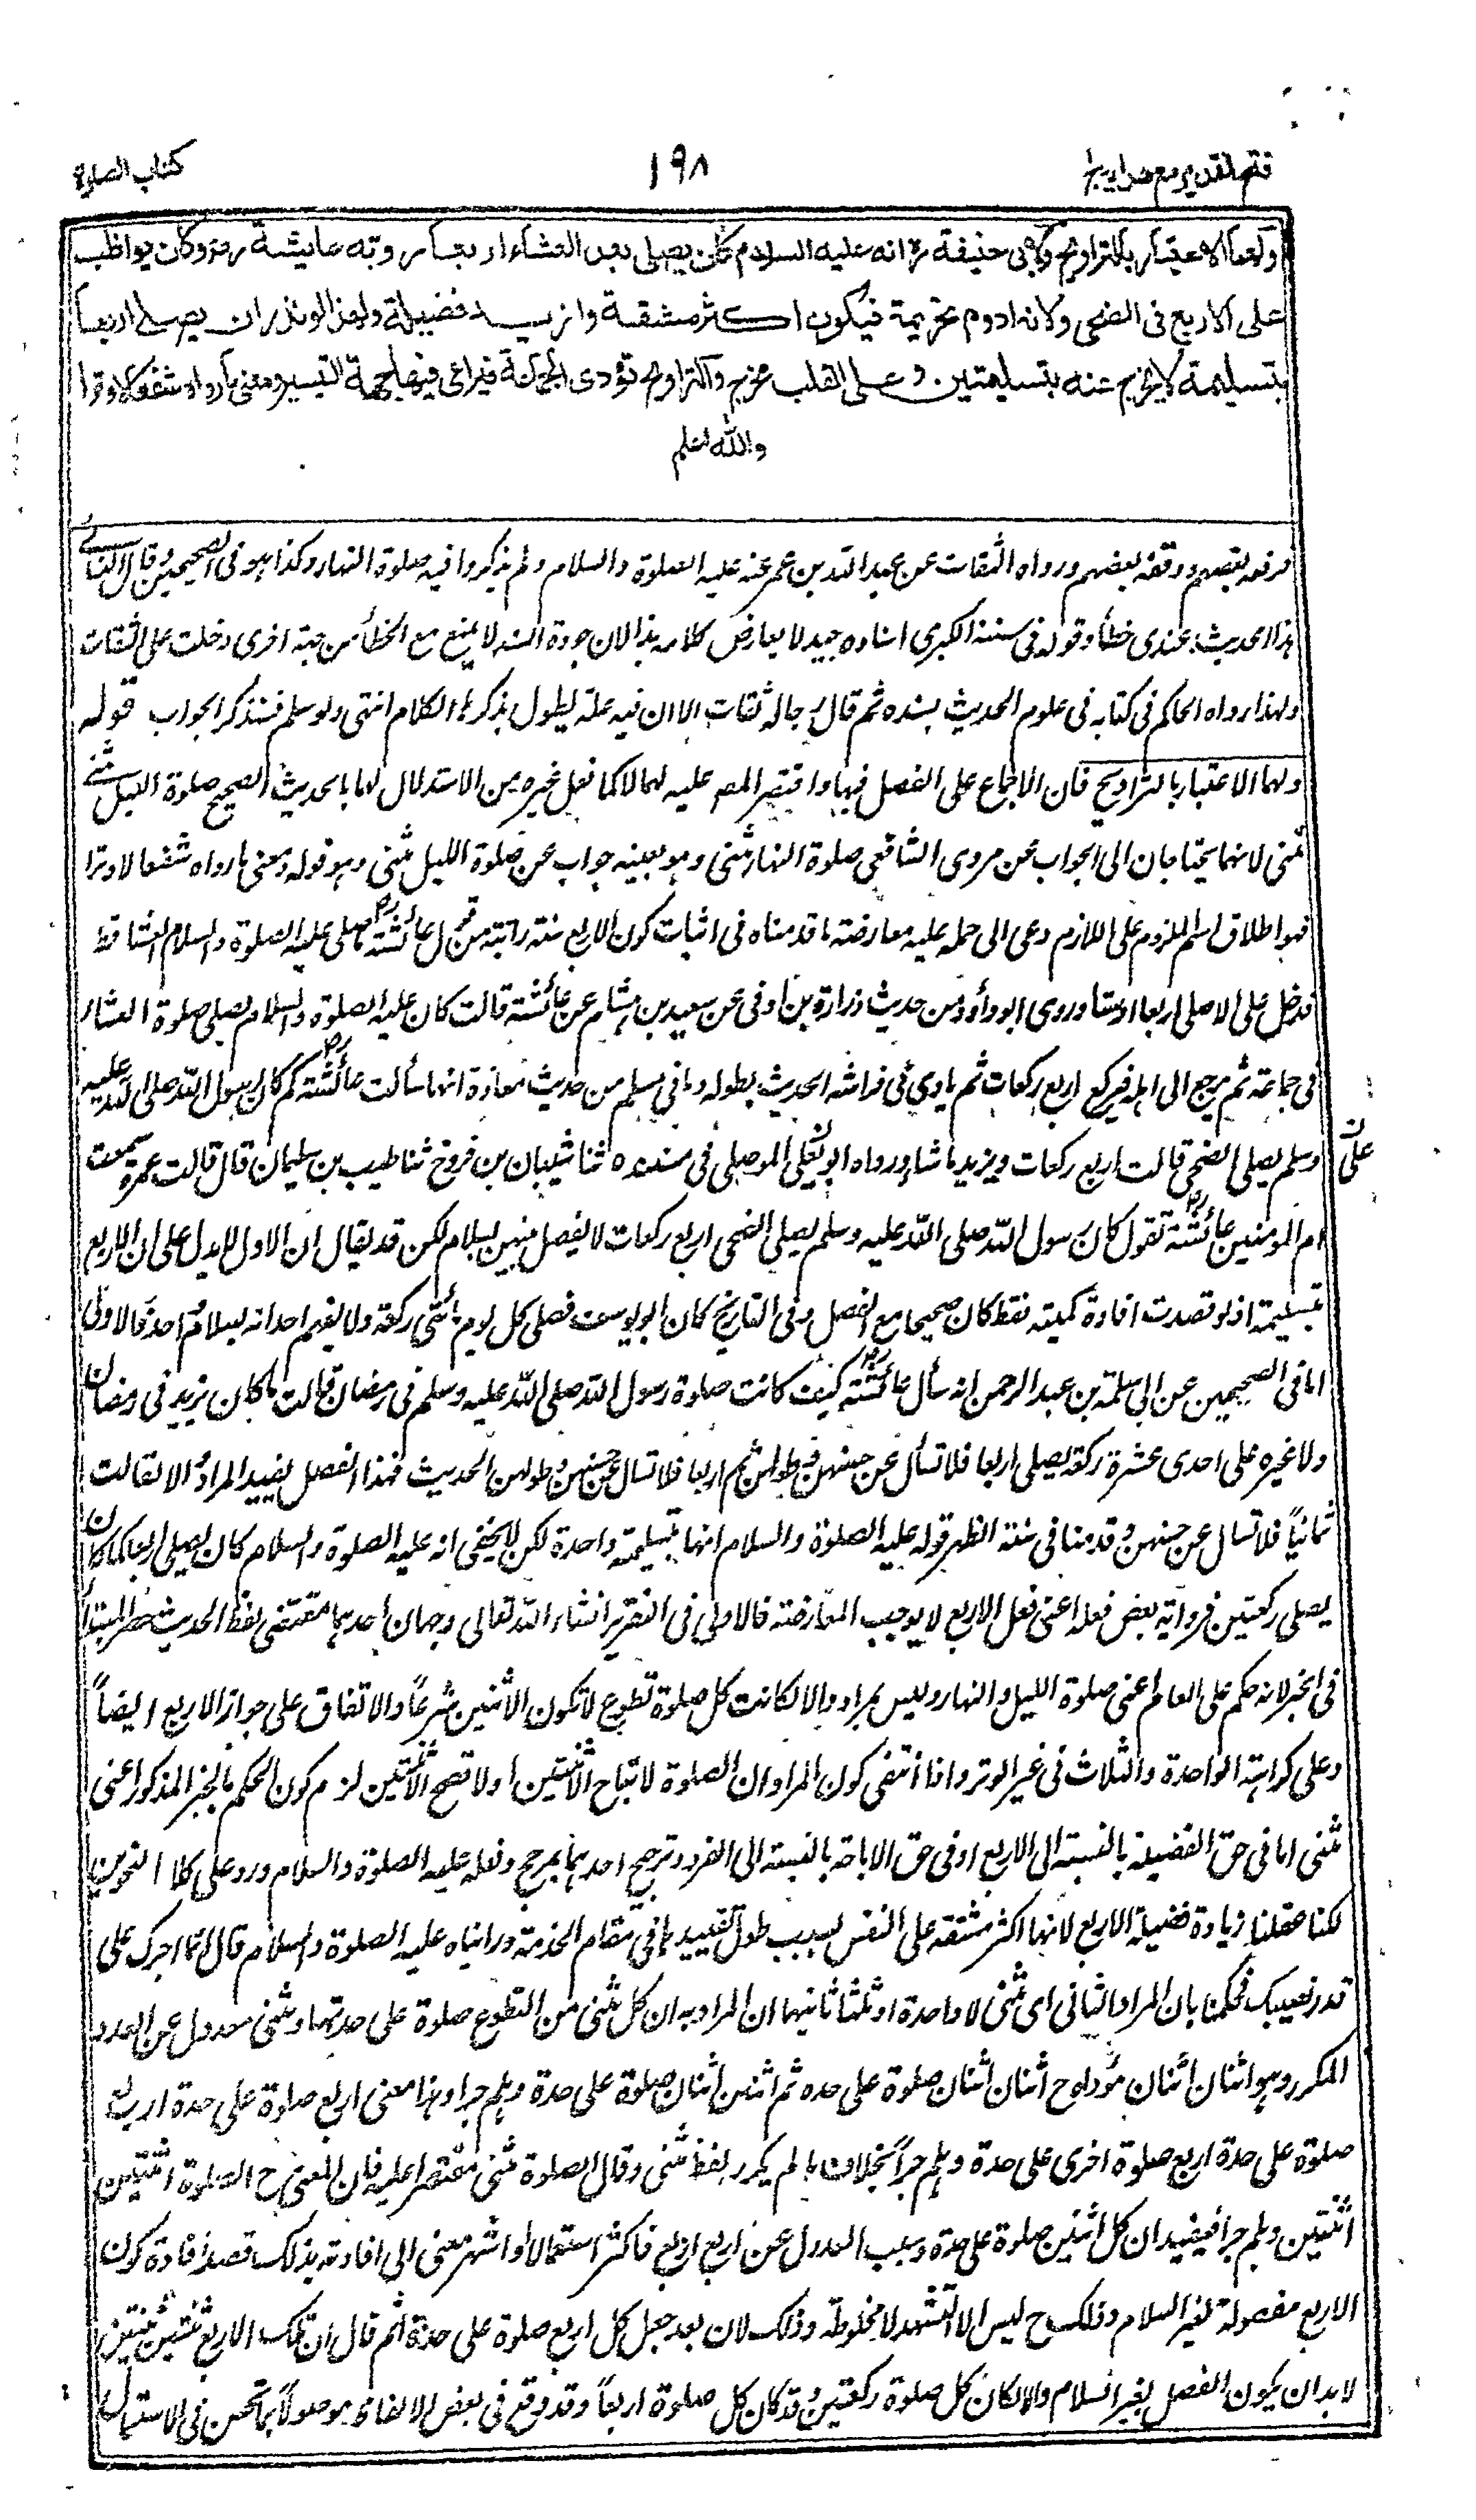 فتح القدير مع هداية ج ا
١٩٨
كتاب الصلوة
ولهما الاعتبار بالتراويح ولابى حنيفة رح انه عليه السلام كان يصلى بعد العشاء اربعا روته عايشة رض وكان يواظب
على الاربع فى الضحى ولانه ادوم تحريمة فيكون اكثر مشقة وازيد فضيلة ولهذا لو نذر ان يصلى اربعا
بتسليمة لا يخرج عنه بتسليمتين وعلى القلب يخرج والتراويح تؤدى بجماعة فيراعى فيها جهة التيسير ومعنى ما رواه شفعا لا وترا
والله اعلم
فرفعه بعضهم ووقفه بعضهم ورواه الثقات عن عبد الله بن عمر عنه عليه الصلوة والسلام ولم يذكروا فيه صلوة النهار وكذا هو فى الصحيحين وقال النسائى
هذا الحديث عندى خطأ وقوله فى سننه الكبرى اسناده جيد لا يعارض كلامه هذا لان جودة السند لا يمنع مع الخطأ من جهة اخرى دخلت على الثقات
ولهذا رواه الحاكم فى كتابه فى علوم الحديث بسنده ثم قال رجاله ثقات الا ان فيه علة يطول بذكرها الكلام انتهى ولو سلم فسنذكر الجواب قوله
ولهما الاعتبار بالتراويح فان الاجماع على الفصل فيها واقتصر المصـ عليه لهما لا كما فعل غيره من الاستدلال لهما بالحديث الصحيح صلوة الليل مثنى
مثنى لانهما يحتاجان الى الجواب عن مروى الشافعى صلوة النهار مثنى وهو بعينه جواب عن صلوة الليل مثنى وهو قوله ومعنى ما رواه شفعا لا وترا
فهو اطلاق اسم الملزوم على اللازم دعى الى حمله عليه معارضته ما قدمناه فى اثبات كون الاربع سنة راتبة من قول عائشة رض ما صلى عليه الصلوة والسلام العشاء قط
فدخل على الا صلى اربعا او ستا وروى ابو داؤد من حديث زرارة بن اوفى عن سعيد بن هشام عن عائشة قالت كان عليه الصلوة والسلام يصلى صلوة العشاء
فى جماعة ثم يرجع الى اهله فيركع اربع ركعات ثم ياوى الى فراشه الحديث بطوله وما فى مسلم من حديث معاذة انها سألت عائشة رض كم كان رسول الله صلى الله عليه
وسلم يصلى الضحى قالت اربع ركعات ويزيد ما شاء ورواه ابو يعلى الموصلى فى مسنده ثنا شيبان بن فروخ ثنا طيب بن سليمان قال قالت عمرة سمعت
ام المومنين عائشة رض تقول كان رسول الله صلى الله عليه وسلم يصلى الضحى اربع ركعات لا يفصل بينهن بسلام لكن قد يقال ان الاول لا يدل على ان الاربع
بتسليمة اذ لو قصدت افادة كميته فقط كان صحيحا مع الفصل وفى التاريخ كان ابو يوسف فصلى كل يوم مائتى ركعة ولا يفهم احد انه بسلام واحد فالاولى
ما فى الصحيحين عن ابى سلمة بن عبد الرحمن انه سأل عائشة رض كيف كانت صلوة رسول الله صلى الله عليه وسلم فى رمضان قالت ما كان يزيد فى رمضان
ولا غيره على احدى عشرة ركعة يصلى اربعا فلا تسأل عن حسنهن وطولهن ثم اربعا فلا تسال عن حسنهن وطولهن الحديث فهذا الفصل يفيد المراد والا لقالت
ثمانياً فلا تسال عن حسنهن وقدمنا فى سنة الظهر قوله عليه الصلوة والسلام انها بتسليمة واحدة لكن لا يخفى انه عليه الصلوة والسلام كان يصلى اربعا كما كان
يصلى ركعتين فرواية بعض فعله اعنى فعل الاربع لا يوجب المعارضة فالاولى فى التقرير انشاء الله تعالى وجهان احدهما مقتضى لفظ الحديث حصر المبتدأ
فى الخبر لانه حكم على العام اعنى صلوة الليل والنهار وليس بمراد والا لكانت كل صلوة تطوع لا تكون الا ثنتين شرعاً والاتفاق على جواز الاربع ايضاً
وعلى كراهة الواحدة والثلاث فى غير الوتر واذا انتفى كون المراد ان الصلوة لا تباح الا ثنتين او لا تصح الا ثنتين لزم كون الحكم بالخبر المذكور اعنى
مثنى اما فى حق الفضيلة بالنسبة الى الاربع او فى حق الاباحة بالنسبة الى الفرد وترجيح احدهما بمرجح وفعله عليه الصلوة والسلام ورد على كلا النحوين
لكنا عقلنا زيادة فضيلة الاربع لانها اكثر مشقة على النفس بسبب طول تقييدها فى مقام الخدمة ورايناه عليه الصلوة والسلام قال انما اجرك على
قدر نصبك فحكمنا بان المراد الثانى اى مثنى لا واحدة او ثلثا ثانيها ان المراد به ان كل مثنى من التطوع صلوة على حدتها ومثنى معدول عن العدد
المكرر وهو اثنان اثنان مؤداه ح اثنان اثنان صلوة على حده ثم اثنين اثنان صلوة على حدة وهلم جرا وهذا معنى اربع صلوة على حدة اربع
صلوة على حدة اربع صلوة اخرى على حدة وهلم جراً بخلاف ما لم يكرر لفظ مثنى وقال الصلوة مثنى مقتصرا عليه فان المعنى ح الصلوة اثنتين
اثنتين وهلم جرا فيفيد ان كل اثنتين صلوة على حدة وسبب العدول عن اربع اربع فاكثر استعمالا واشهر معنى الى افادته بذلك قصد افادة كون
الاربع مفصولة بغير السلام وذلك ح ليس الا التشهد لا مخلوطة وذلك لان بعد جعل كل اربع صلوة على حدة ثم قال ان تلك الاربع ثنتين ثنتين
لا بد ان يكون الفصل بغير السلام والا كان كل صلوة ركعتين وقد كان كل صلوة اربعاً وقد وقع فى بعض الالفاظ موصولاً بما يحسن فى الاستعمال